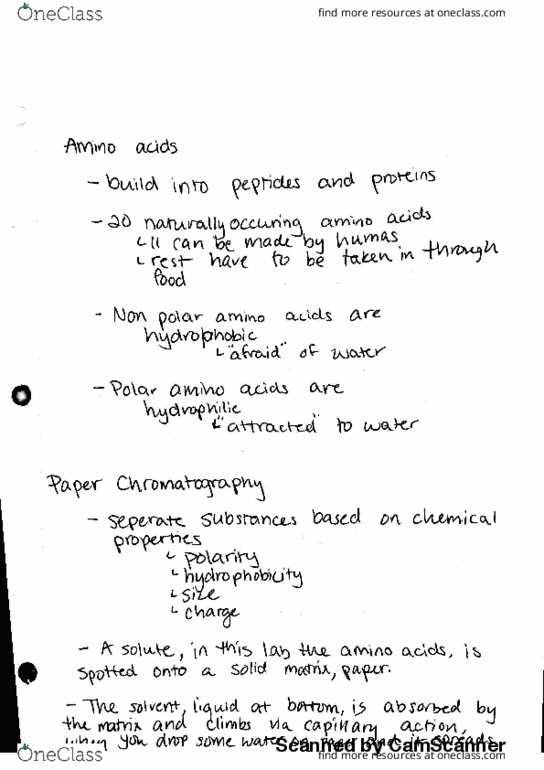 OneClass
find more resources at oneclass.com
Amino acids
- build into peptides and proteins
- 20 naturally occuring amino acids
↳ 11 can be made by humas
↳ rest have to be taken in through
food
- Non polar amino acids are
hydrophobic
↳ "afraid" of water
- Polar amino acids are
hydrophilic
↳ "attracted" to water
Paper Chromatography
- seperate substances based on chemical
properties
↳ polarity
↳ hydrophobicity
↳ size
↳ charge
- A solute, in this lab the amino acids, is
spotted onto a solid matrix, paper.
- The solvent, liquid at bottom, is absorbed by
the matrix and climbs via capillary action,
when you drop some water on paper and it spreads
Scanned by CamScanner
OneClass
find more resources at oneclass.com